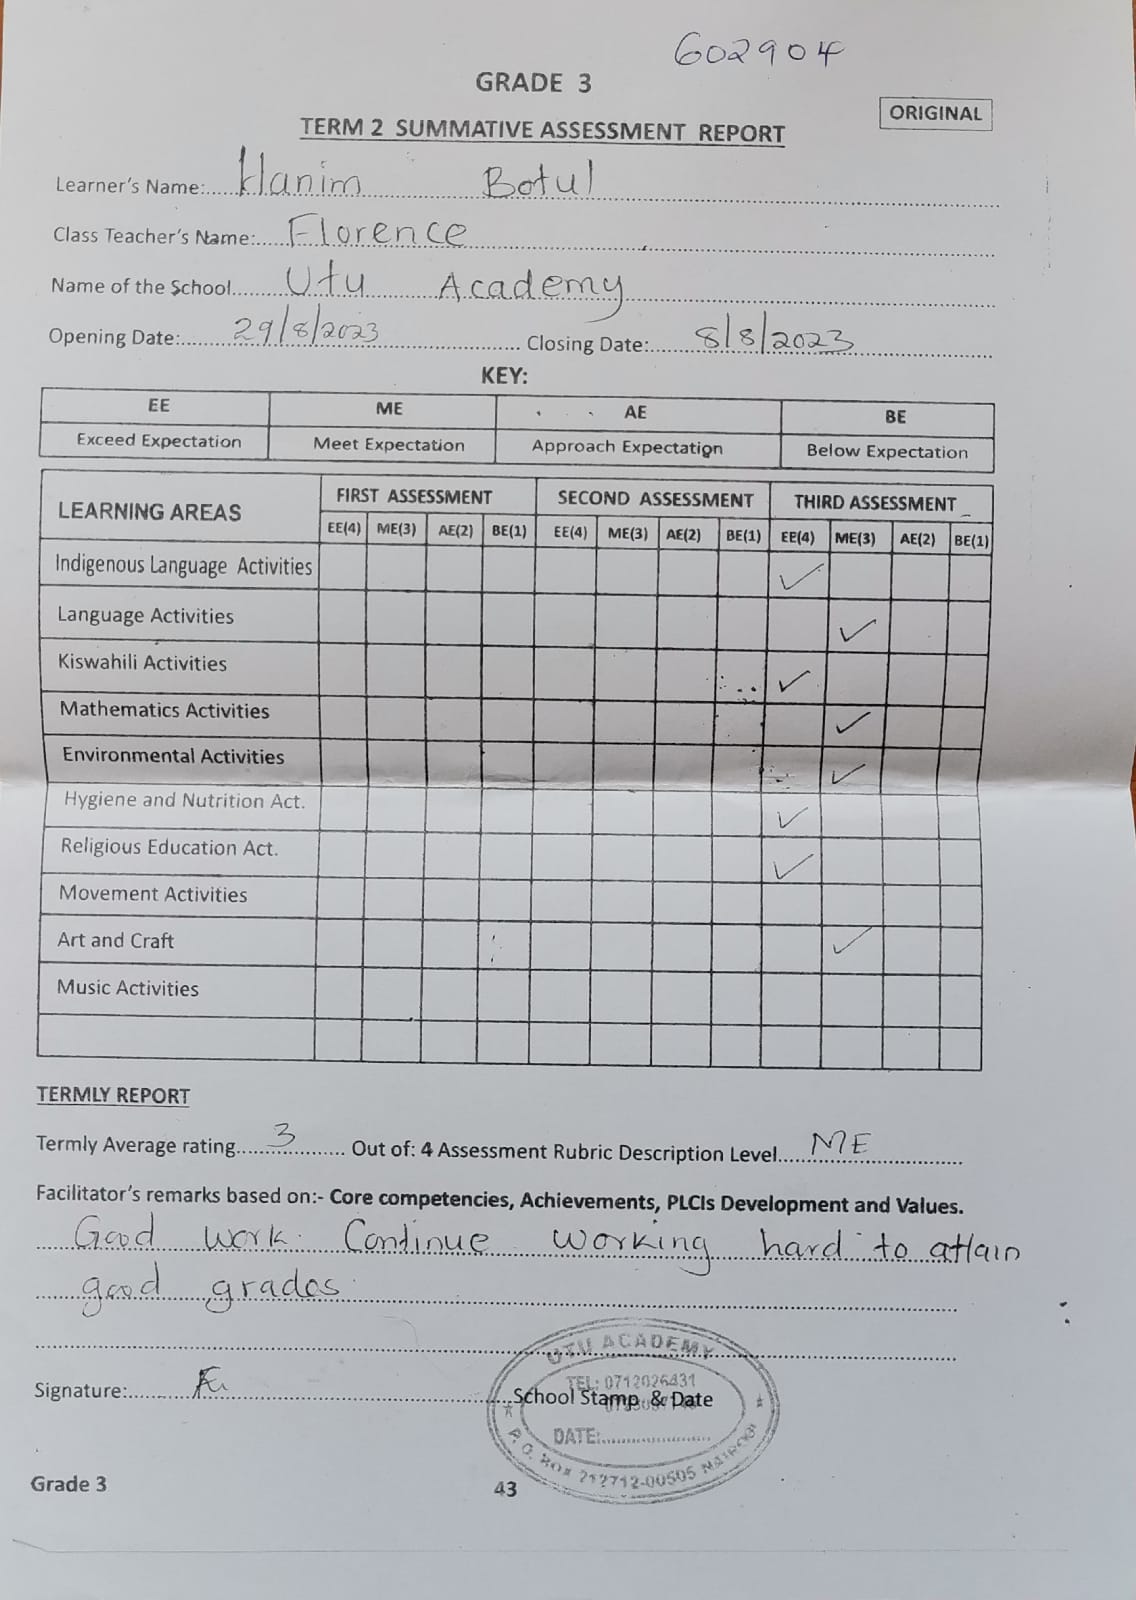 602904
GRADE 3
ORIGINAL
TERM 2 SUMMATIVE ASSESSMENT REPORT
Learner's Name:.....Hanim Botul
Class Teacher's Name:.....Florence
Name of the School.....Utu Academy
Opening Date:.....29/8/2023..... Closing Date:.....8/8/2023
KEY:
EE ME AE BE
Exceed Expectation Meet Expectation Approach Expectation Below Expectation
LEARNING AREAS FIRST ASSESSMENT SECOND ASSESSMENT THIRD ASSESSMENT
EE(4) ME(3) AE(2) BE(1) EE(4) ME(3) AE(2) BE(1) EE(4) ME(3) AE(2) BE(1)
Indigenous Language Activities ✓
Language Activities ✓
Kiswahili Activities ✓
Mathematics Activities ✓
Environmental Activities ✓
Hygiene and Nutrition Act. ✓
Religious Education Act. ✓
Movement Activities
Art and Craft ✓
Music Activities
TERMLY REPORT
Termly Average rating.....3..... Out of: 4 Assessment Rubric Description Level.....ME
Facilitator's remarks based on:- Core competencies, Achievements, PLCIs Development and Values.
Good work. Continue working hard to attain
good grades.
UTU ACADEMY
TEL: 0712026431
Signature:..... School Stamp & Date
DATE:.....
P. O. Box 212712-00505 NAIROBI
Grade 3 43